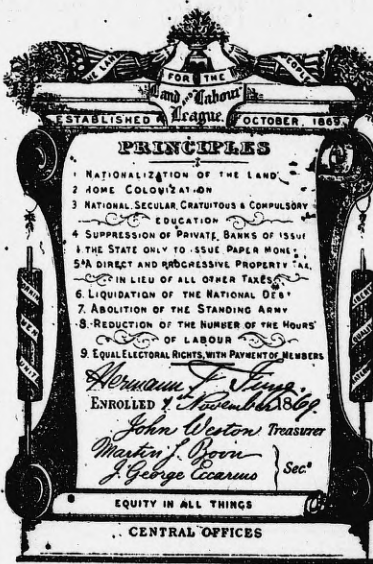 THE LAND FOR THE PEOPLE
Land and Labour
League.
ESTABLISHED OCTOBER, 1869
PRINCIPLES
1 NATIONALIZATION OF THE LAND
2 HOME COLONIZATION
3 NATIONAL, SECULAR, GRATUITOUS & COMPULSORY
EDUCATION
4 SUPPRESSION OF PRIVATE BANKS OF ISSUE
THE STATE ONLY TO ISSUE PAPER MONEY
5 A DIRECT AND PROGRESSIVE PROPERTY TAX,
IN LIEU OF ALL OTHER TAXES
6. LIQUIDATION OF THE NATIONAL DEBT
7. ABOLITION OF THE STANDING ARMY
8. REDUCTION OF THE NUMBER OF THE HOURS
OF LABOUR
9. EQUAL ELECTORAL RIGHTS, WITH PAYMENT OF MEMBERS
Hermann F. Jung
ENROLLED November 1869
John Weston Treasurer
Martin J. Boon
J. George Eccarius Secs
EQUITY IN ALL THINGS
CENTRAL OFFICES